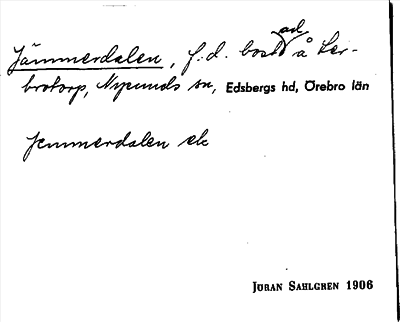 Jämmerdalen, f.d. bostad å Ler-
brotorp, Nysunds sn, Edsbergs hd, Örebro län
Jemmerdalen ek
JÖRAN SAHLGREN 1906